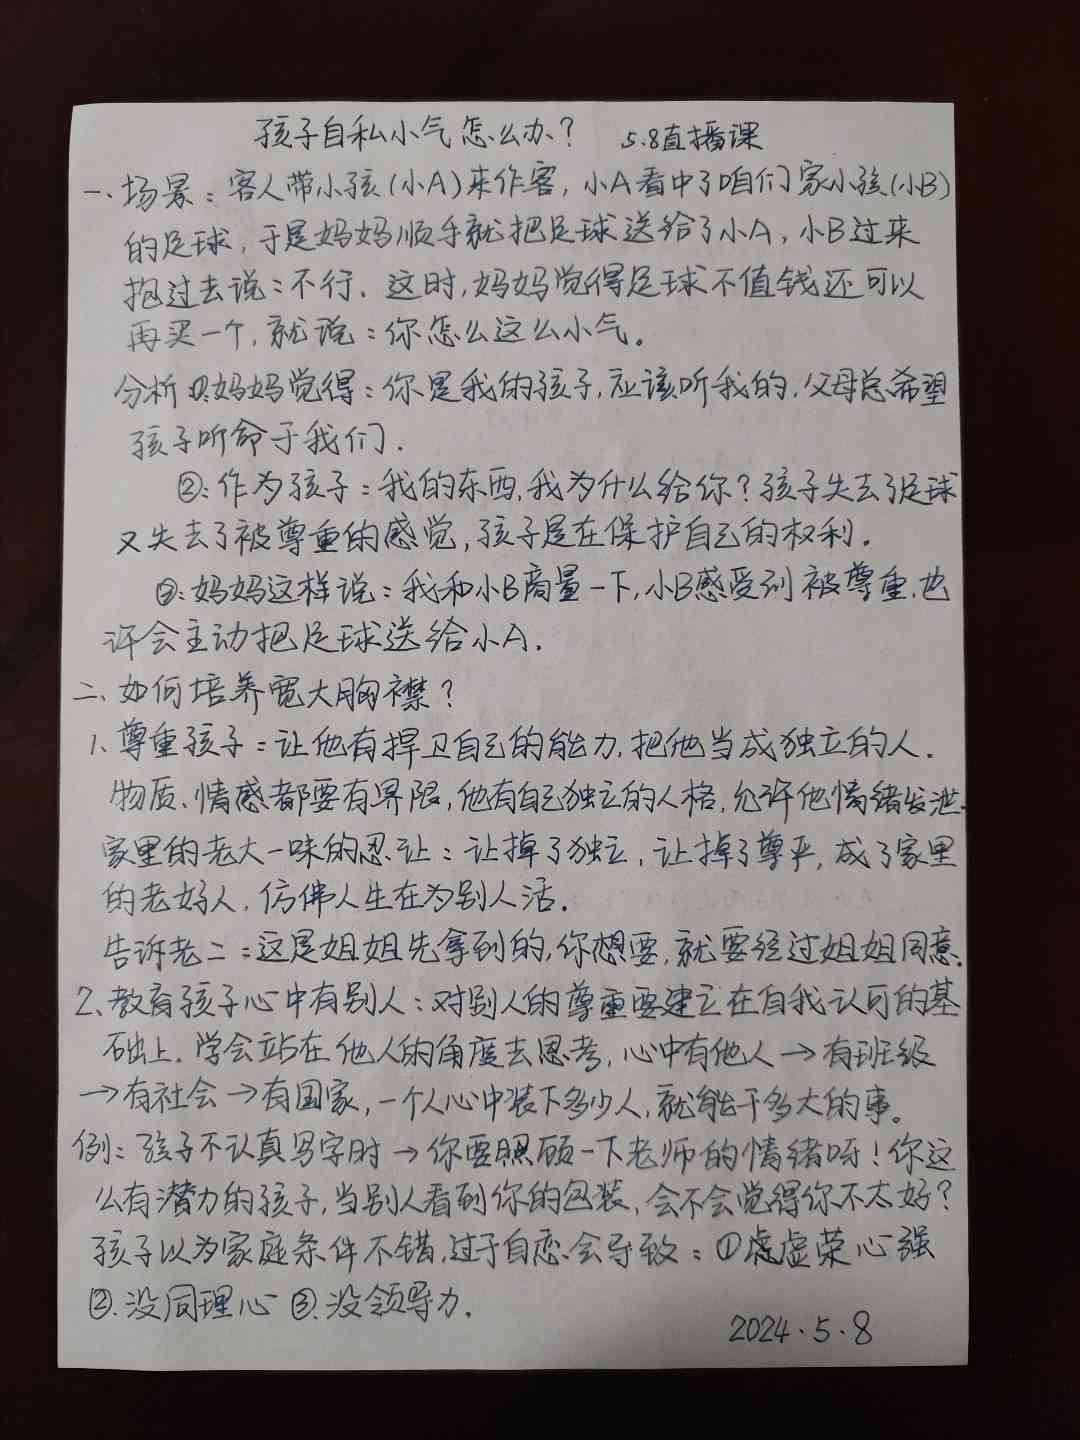 孩子自私小气怎么办？ 5.8直播课
一、场景：客人带小孩(小A)来作客，小A看中了咱们家小孩(小B)
的足球，于是妈妈顺手就把足球送给了小A，小B过来
抱过去说：不行．这时，妈妈觉得足球不值钱还可以
再买一个，就说：你怎么这么小气。
分析 妈妈觉得：你是我的孩子，应该听我的．父母总希望
孩子听命于我们．
②：作为孩子：我的东西，我为什么给你？孩子失去了足球
又失去了被尊重的感觉，孩子是在保护自己的权利．
③：妈妈这样说：我和小B商量一下，小B感受到被尊重．也
许会主动把足球送给小A．
二、如何培养宽大胸襟？
1、尊重孩子：让他有捍卫自己的能力，把他当成独立的人．
物质、情感都要有界限，他有自己独立的人格，允许他情绪发泄．
家里的老大一味的忍让：让掉了独立，让掉了尊严，成了家里
的老好人，仿佛人生在为别人活．
告诉老二：这是姐姐先拿到的，你想要，就要经过姐姐同意．
2、教育孩子心中有别人：对别人的尊重要建立在自我认可的基
础上．学会站在他人的角度去思考，心中有他人→有班级
→有社会→有国家，一个人心中装下多少人，就能干多大的事。
例：孩子不认真写字时→你要照顾一下老师的情绪呀！你这
么有潜力的孩子，当别人看到你的包装，会不会觉得你不太好？
孩子以为家庭条件不错，过于自恋会导致：①虚荣心强
②．没同理心 ③．没领导力．
2024．5．8